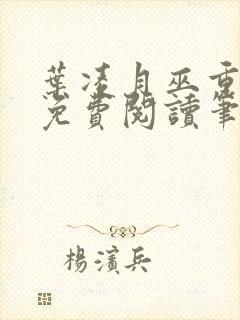 葉凌月巫重
免費閱讀筆
楊濱兵